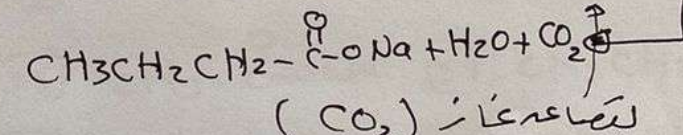 CH3CH2CH2-C-ONa+H2O+CO2
O
لتصاعد غاز (CO2)